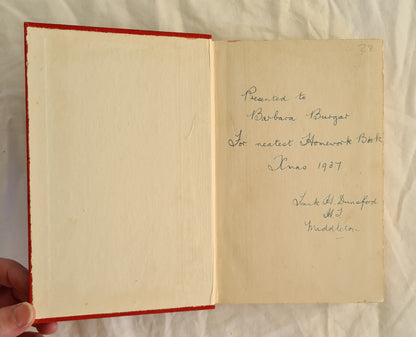 28
Presented to
Barbara Burgar
For neatest Homework Book
Xmas 1937
Frank H. Dunsford
H.T.
Middleton